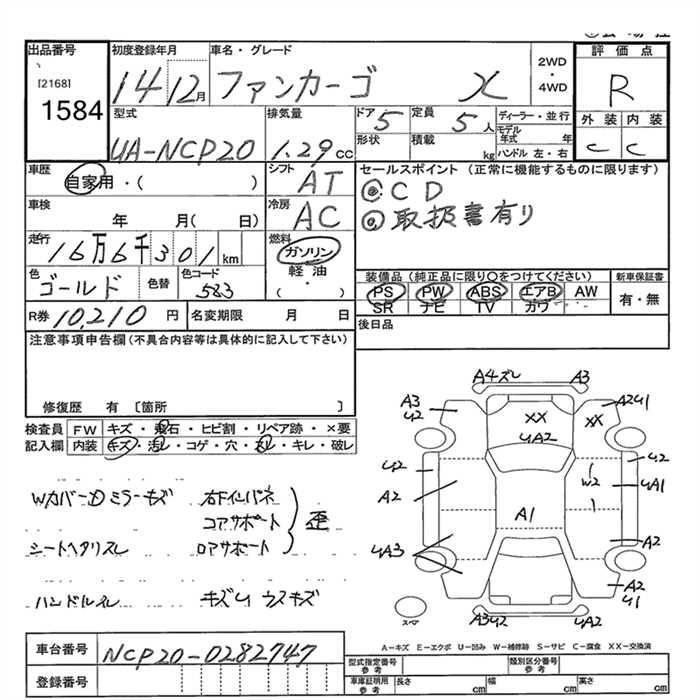 出品番号
[2168]
1584
初度登録年月
14 12月
車名・グレード
ファンカーゴ X
2WD
・
4WD
評価点
R
外装 内装
C C
型式
UA-NCP20
排気量
1.29 cc
ドア 5
形状
定員 5 人
積載 kg
ディーラー・並行
モデル年式 年
ハンドル 左・右
車歴
自家用・( )
シフト
AT
セールスポイント (正常に機能するものに限ります)
◎CD
◎取扱書有り
車検
年 月( 日)
冷房
AC
走行
16万6千301km
燃料
ガソリン
軽油
・
( )
色
ゴールド
色替
色コード
583
装備品(純正品に限り○をつけてください)
新車保証書
PS PW ABS エアB AW
SR ナビ TV カワ
有・無
R券 10,210 円
名変期限 月 日
後日品
注意事項申告欄(不具合内容等は具体的に記入して下さい)
修復歴 有 〔箇所 〕
検査員 FW キズ・飛石・ヒビ割・リペア跡・×要
記入欄 内装 キズ・汚レ・コゲ・穴・スレ・キレ・破レ
右下インパネ
コアサポート
シートヘタリスレ ロアサポート
歪
ハンドルスレ キズU ウスキズ
A4ズレ A3
A3 U2
XX
XX
A2U1
UA2
U2
A2
U2
W2
UA1
A1
A2
UA3
A2 U1
A3U2
UA2
スペア
A-キズ E-エクボ U-凹み W-補修跡 S-サビ C-腐食 XX-交換済
車台番号 NCP20-0282747
登録番号
型式指定番号 参考
類別区分番号 参考
車庫証明用 参考
長さ cm 幅 cm 高さ cm